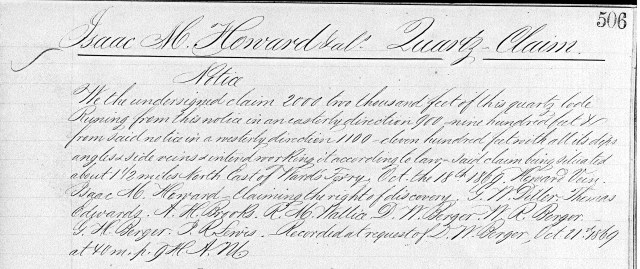 506
Isaac M. Howard & als. Quartz Claim.
Notice
We the undersigned claim 2000 two thousand feet of this quartz lode
Runing from this notice in an easterly direction 900 nine hundred feet &
from said notice in a westerly direction 1100 eleven hundred feet with all its dips
angles & side veins & intend working it according to law. Said claim being situated
about 1 1/2 miles North East of Wards Ferry, Oct. the 18th 1869. Howard
Isaac M. Howard claiming the right of discovery. G. W. Thomas
Edwards. A. H. R. M. D. W. Berger. W. R. Berger.
G. H. Berger. P. R. Lewis. Recorded at request of D. W. Berger, Oct 21st 1869
at 40 m. p. 9 H. A. M.